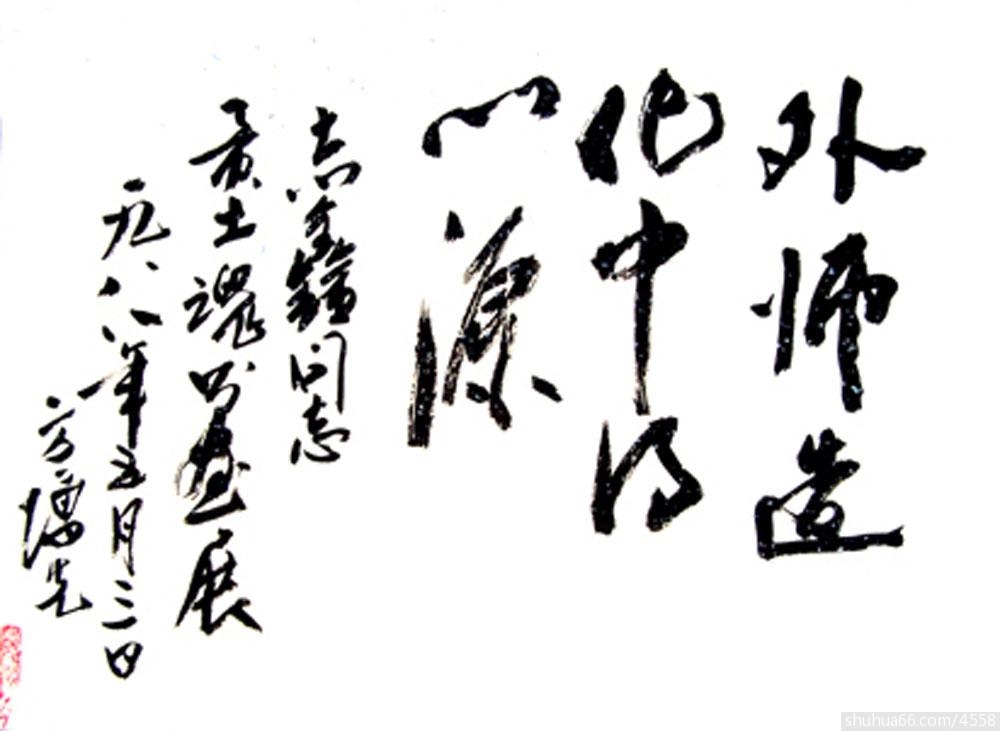 外师造
化中得
心源
志鑫同志
黄土魂画展
一九八八年五月二日
方
shuhua66.com/4558